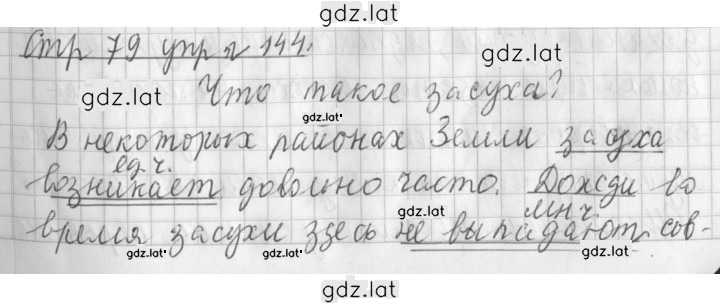 gdz.lat
Стр 79 упр № 144.
gdz.lat
gdz.lat
Что такое засуха?
gdz.lat
В некоторых районах Земли засуха
ед.ч.
возникает довольно часто. Дожди во
gdz.lat
мн.ч.
время засухи здесь не выпадают сов-
gdz.lat
gdz.lat
gdz.lat